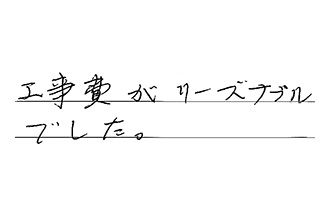 工事費がリーズナブル
でした。